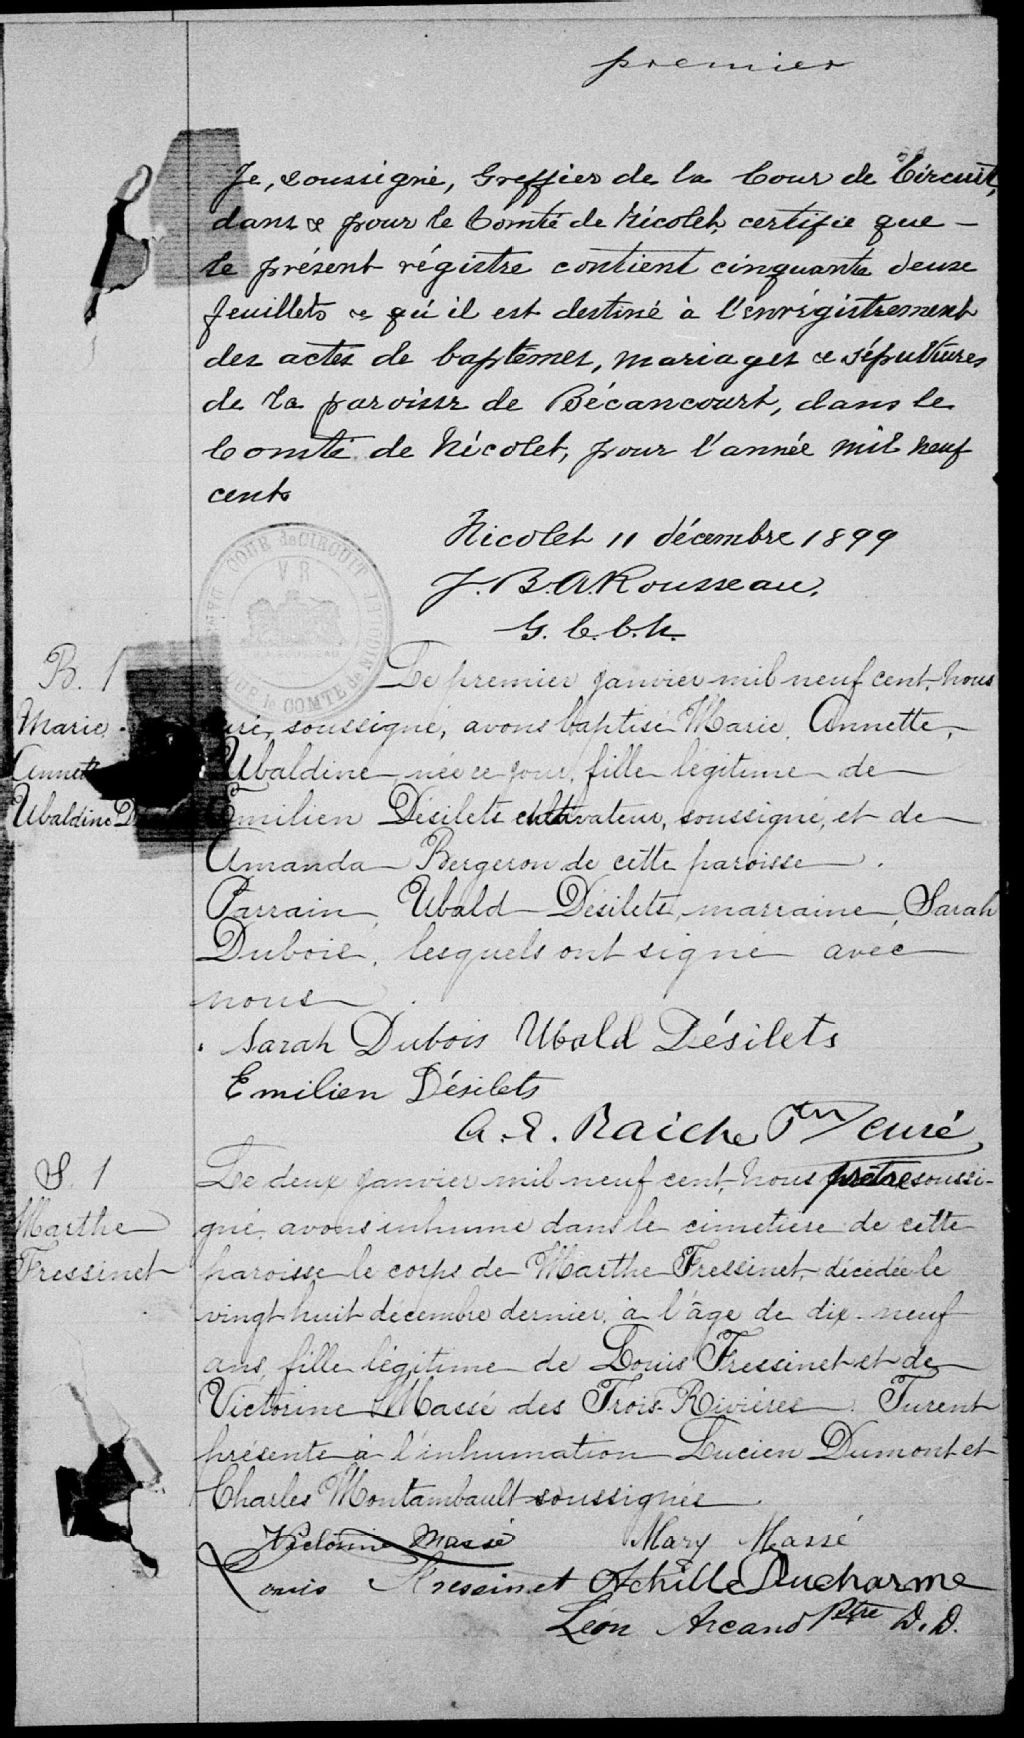 premier
Je, soussigné, Greffier de la Cour de Circuit,
dans & pour le Comté de Nicolet, certifie que –
le présent régistre contient cinquante deux
feuillets & qu'il est destiné à l'enrégistrement
des actes de baptêmes, mariages & sépultures
de la paroisse de Bécancourt, dans le
Comté de Nicolet, pour l'année mil neuf
cent
Nicolet 11 décembre 1899
J. B. A. Rousseau,
G. C. C. N.
COUR de CIRCUIT
V R
COMTÉ de
B. 1
Marie
Annette
Ubaldine D
Le premier janvier mil neuf cent, nous
curé, soussigné, avons baptisé Marie, Annette,
Ubaldine, née ce jour, fille légitime de
Emilien Désilets cultivateur, soussigné, et de
Amanda Bergeron de cette paroisse.
Parrain, Ubald Désilets, marraine, Sarah
Dubois, lesquels ont signé avec
nous.
Sarah Dubois Ubald Désilets
Emilien Désilets
A. E. Raiche Ptre curé
S. 1
Marthe
Fressinet
Le deux janvier mil neuf cent, nous prêtre soussi-
gné, avons inhumé dans le cimetière de cette
paroisse le corps de Marthe Fressinet, décédée le
vingt huit décembre dernier, à l'âge de dix-neuf
ans, fille légitime de Louis Fressinet et de
Victorine Massé des Trois-Rivières. Furent
présents à l'inhumation Lucien Dumont et
Charles Montambault soussignés.
Victorine Massé Mary Massé
Louis Fressinet Achille Ducharme
Léon Arcand Ptre D. D.